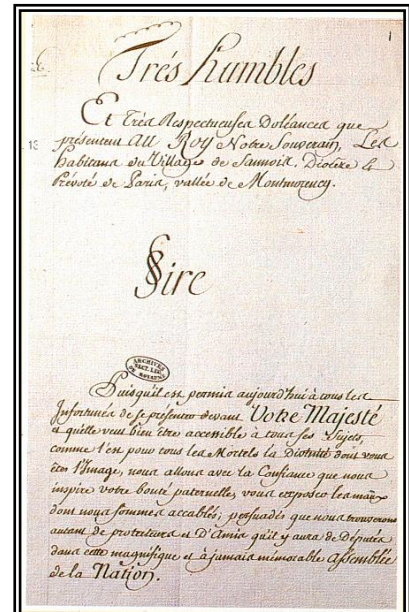 1
Trés humbles
Et Trés Respectueuses Doléances que
13
présentent AU ROY Notre Souverain, Les
habitans du Village de Sannois. Diocèse &
Prévoté de Paris, vallée de Montmorency.
Sire
ARCHIVES
SECT. LEG.
DU ROYAUME
Puisqu'il est permis aujourd'hui à tous les
Infortunés de se présenter devant Votre Majesté
et qu'elle veut bien être accessible à tous ses Sujets,
comme l'est pour tous les Mortels la Divinité dont vous
êtes l'Image, nous allons avec la Confiance que nous
inspire votre bonté paternelle, vous exposer les maux
dont nous sommes accablés; persuadés que nous trouverons
autant de protecteurs et D'Amis qu'il y aura de Députés
dans cette magnifique et à jamais mémorable Assemblée
de la Nation.